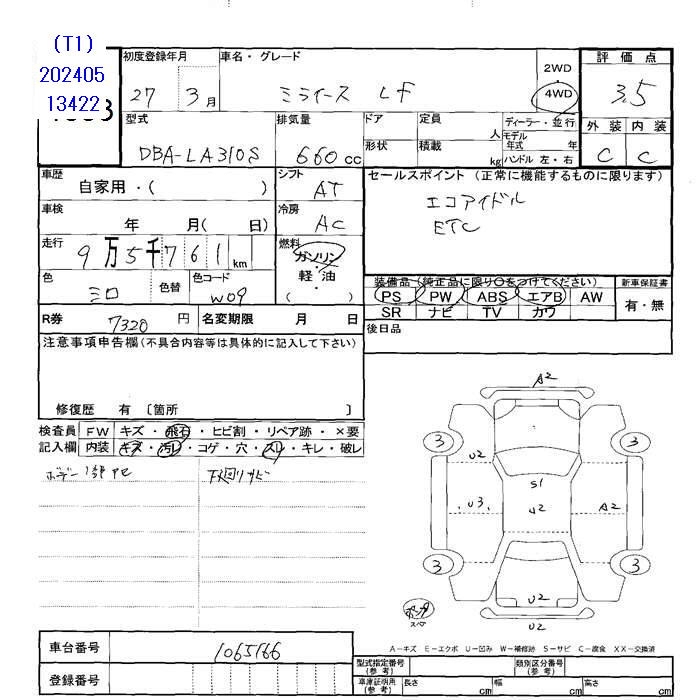 (T1)
202405
13422
初度登録年月 車名・グレード
27 3 月 ミライース Lf
2WD
4WD
評価点
3.5
外装 内装
C C
型式 排気量 ドア 定員 人 ディーラー・並行
DBA-LA310S 660 cc
形状 積載 kg モデル年式 年
ハンドル 左・右
車歴 自家用・( )
シフト AT
セールスポイント (正常に機能するものに限ります)
エコアイドル
ETC
車検 年 月( 日)
冷房 AC
走行 9万5千761km
燃料 ガソリン・軽・油 ( )
色 シロ 色替 色コード W09
装備品 (純正品に限り○をつけてください) 新車保証書
PS PW ABS エアB AW 有・無
SR ナビ TV カワ
R券 7320 円 名変期限 月 日
後日品
注意事項申告欄(不具合内容等は具体的に記入して下さい)
修復歴 有 〔箇所 〕
検査員 FW キズ・飛石・ヒビ割・リペア跡・×要
記入欄 内装 キズ・汚レ・コゲ・穴・スレ・キレ・破レ
下廻りサビ
A2
3 3
U2
S1
U3 U2 A2
3 3
U2
U2
A-キズ E-エクボ U-凹み W-補修跡 S-サビ C-腐食 XX-交換済
車台番号 1065166
登録番号
型式指定番号(参考) 類別区分番号(参考)
車庫証明用(参考) 長さ cm 幅 cm 高さ cm